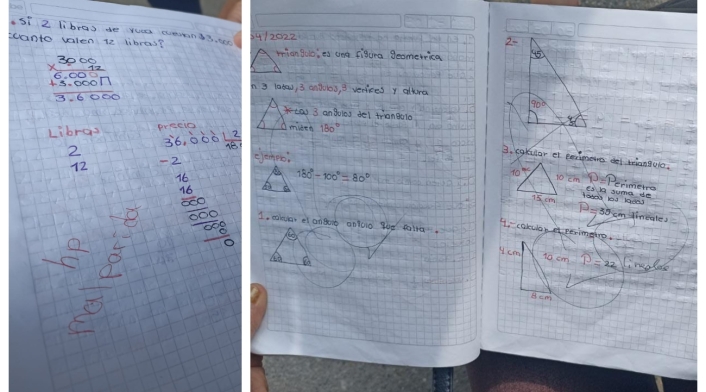 . Si 2 libras de yuca cuestan $3,000
cuanto valen 12 libras?
3000
x 12
6.000
+3.000
3.6000
Libras
2
12
precio
36,000 2
-2
16
16
000
000
000
0
hp
mal parida
04/2022
triangulo; es una figura geometrica
3 lados, 3 angulos, 3 vertices y altura
*los 3 angulos del triangulo
miden 180°
ejemplo;
180° - 100° = 80°
1. calcular el angulo que falta.
2-
45°
90°
3. calcular el perimetro del triangulo.
10 cm 10 cm P=Perimetro
es la suma de
todos los lados
15 cm
P= 35 cm lineales
4. calcular el perimetro.
4 cm 10 cm P= 22
8 cm